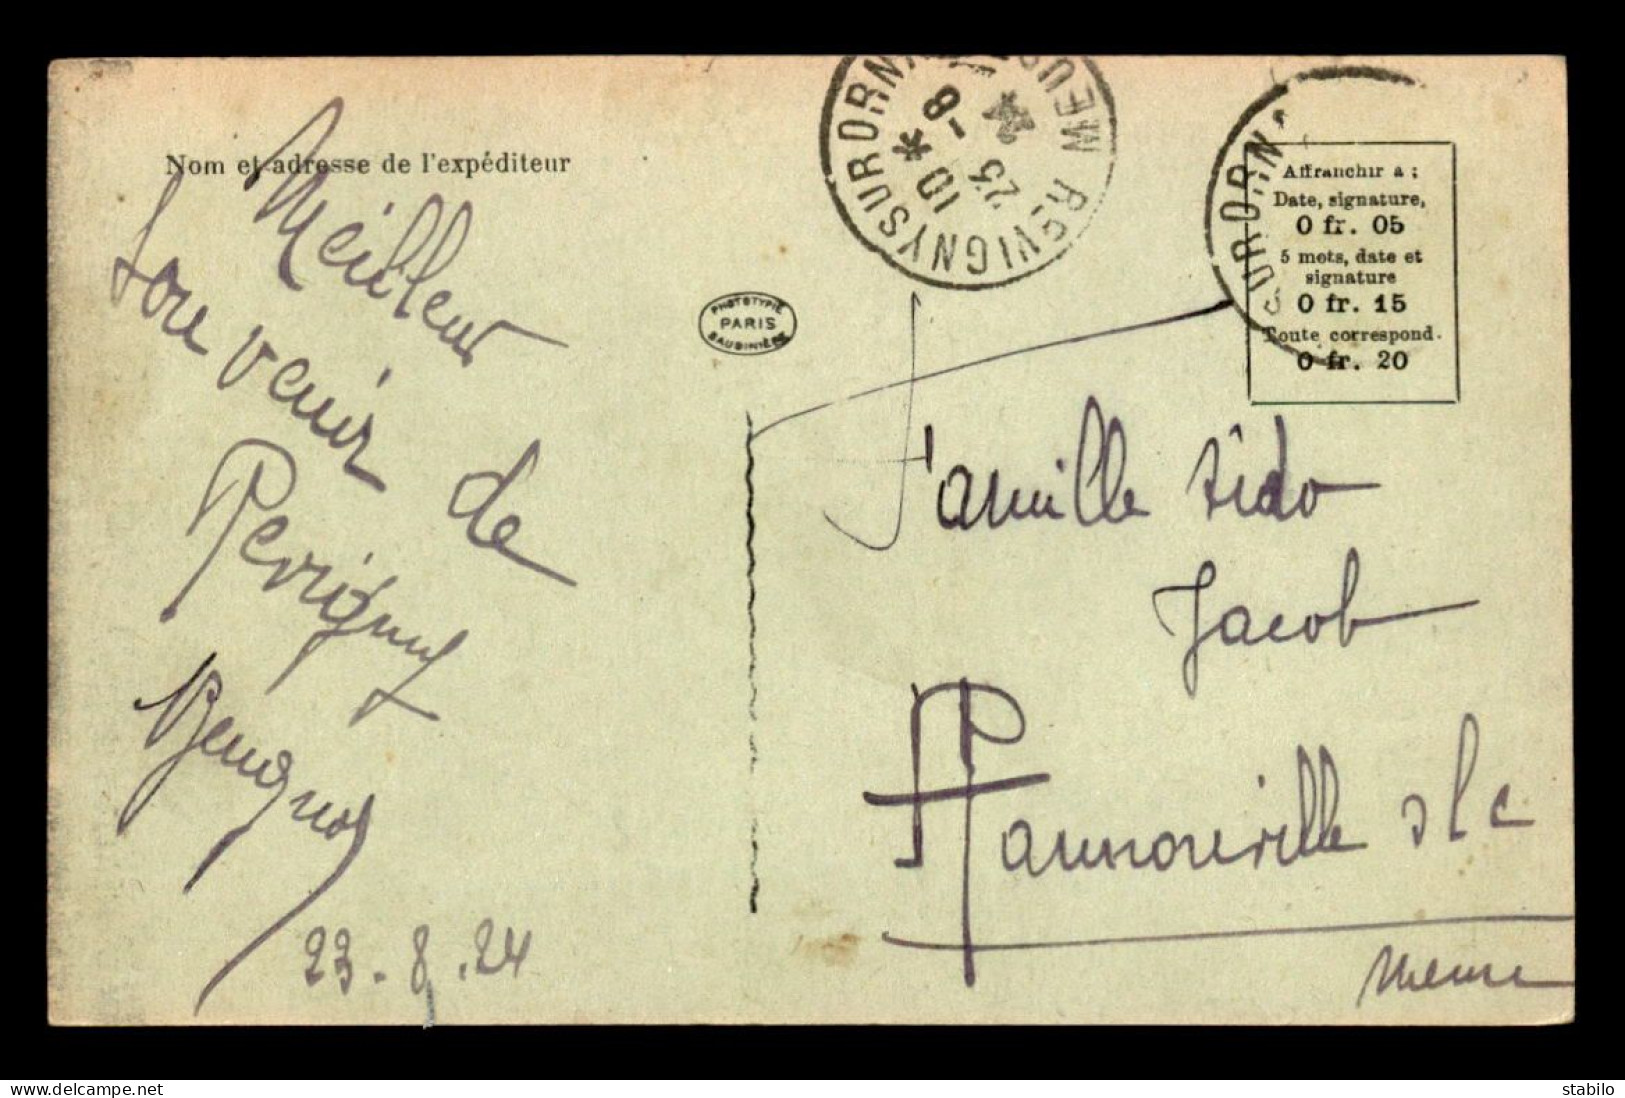 Nom et adresse de l'expéditeur
Meilleur
Souvenir
de
23.8.24
PHOTOTYPIE
PARIS
BAUDINIÈRE
REVIGNY SUR ORNAIN MEUSE
10 *
23 - 8
UR ORNA
Affranchir à :
Date, signature,
0 fr. 05
5 mots, date et
signature
0 fr. 15
Toute correspond.
0 fr. 20
Famille Sido
Jacob
Hannonville s/ l c
Meuse
delcampe.net
stabilo